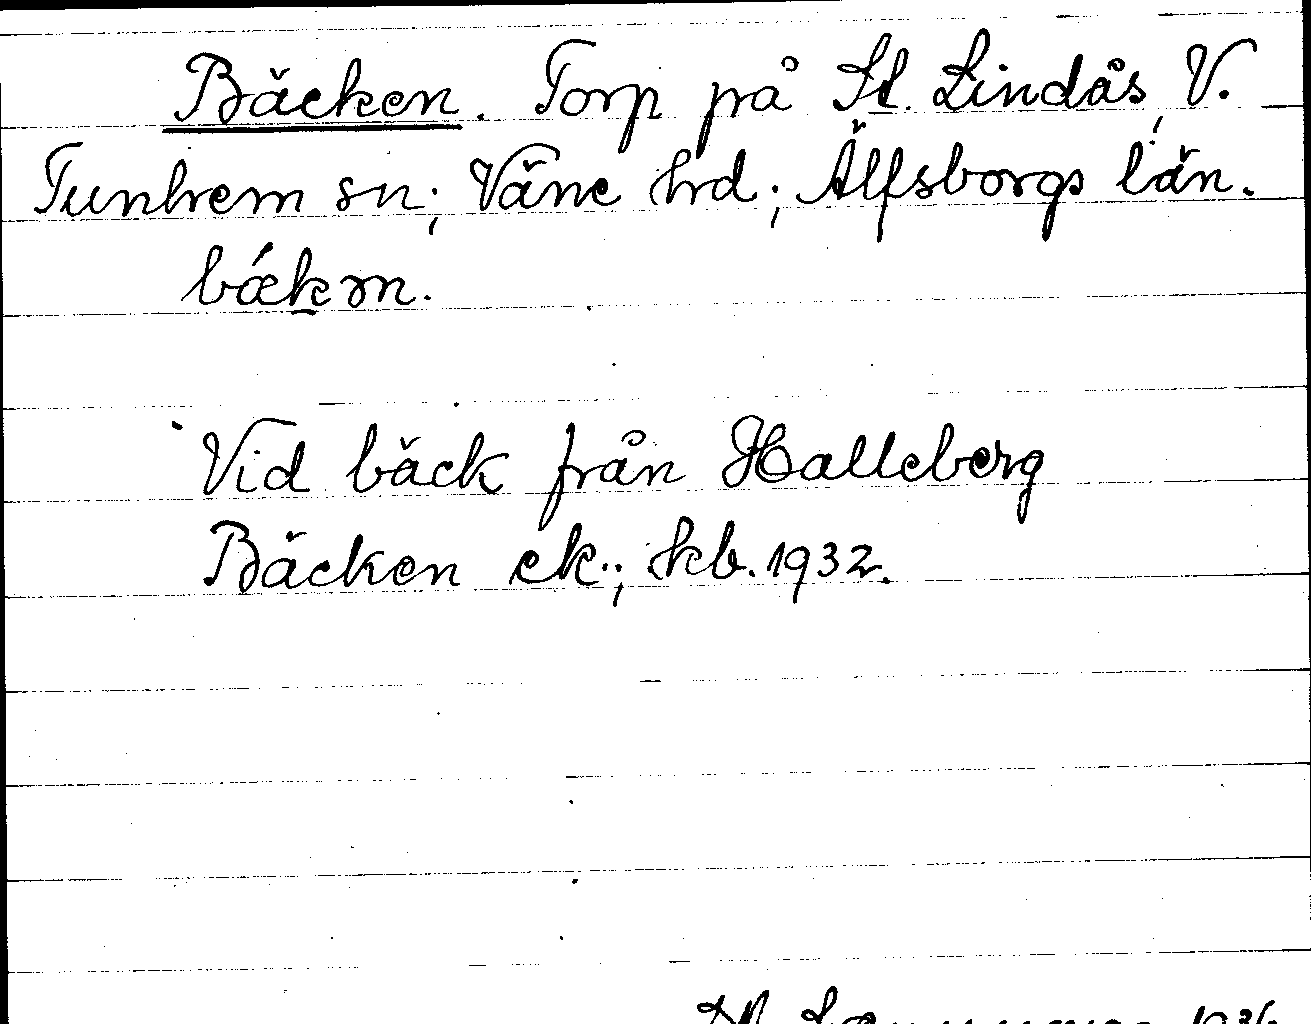 Bäcken. Torp på St. Lindås, V.
Tunhem sn; Väne hrd; Älfsborgs län.
bǽkən.
Vid bäck från Halleberg
Bäcken ek.; kb. 1932.